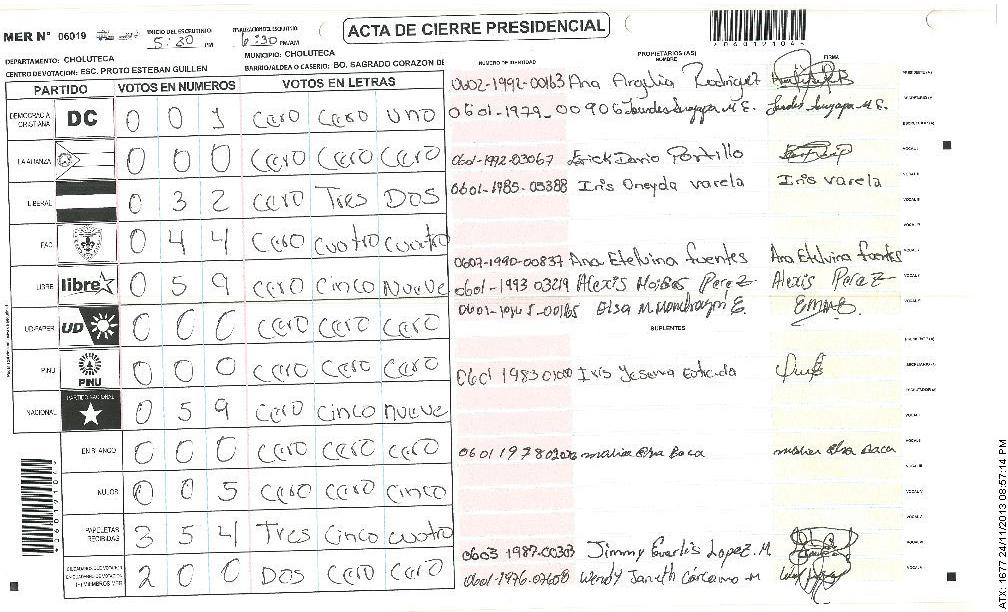 MER N° 06019
INICIO DEL ESCRUTINIO
5:30 PM
6:30 PM/AM
ACTA DE CIERRE PRESIDENCIAL
DEPARTAMENTO: CHOLUTECA
MUNICIPIO: CHOLUTECA
CENTRO DE VOTACION: ESC. PROTO ESTEBAN GUILLEN
BARRIO/ALDEA O CASERIO: BO. SAGRADO CORAZON DE
PARTIDO VOTOS EN NUMEROS VOTOS EN LETRAS
NUMERO DE IDENTIDAD PROPIETARIOS (AS) NOMBRE FIRMA
DEMOCRACIA CRISTIANA DC 0 0 1 cero cero uno
LA ALIANZA 0 0 0 cero cero cero
LIBERAL 0 3 2 cero Tres DOS
FAC 0 4 4 cero cuatro cuatro
LIBRE libre 0 5 9 cero cinco nueve
UD-FAPER UD 0 0 0 cero cero cero
PINU PINU 0 0 0 cero cero cero
NACIONAL PARTIDO NACIONAL 0 5 9 cero cinco nueve
EN BLANCO 0 0 0 cero cero cero
NULOS 0 0 5 cero cero cinco
PAPELETAS RECIBIDAS 3 5 4 Tres cinco cuatro
2 0 0 DOS cero cero
0602-1992-00163 Ana Argelia Rodriguez
0601-1979-00906 Lourdes Suyapa M E.
0601-1992-03067 Erick Dario Portillo
0601-1985-05388 Iris Oneyda varela Iris varela
0607-1990-00837 Ana Etelvina fuentes Ana Etelvina fuentes
0601-1993 03219 Alexis Moises Perez Alexis Perez
Elsa M. Mondragón E.
SUPLENTES
Iris Yesenia
maria Elsa Baca
0603 1987-00303 Jimmy Evarlis Lopez. M
0601-1976-07608 Wendy Janeth Cárcamo M
ATX: 1677 24/11/2013 08:57:14 PM